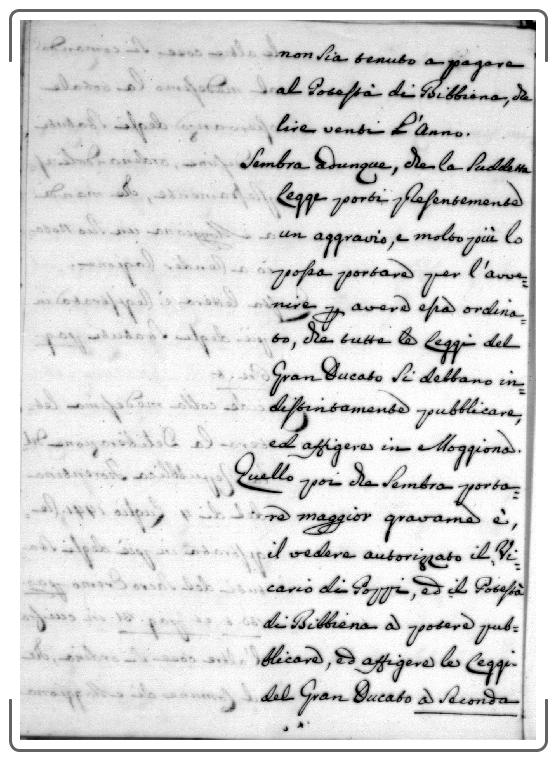 non sia tenuto a pagare
al Potestà di Bibbiena, che
lire venti l'Anno.
Sembra adunque, che la suddetta
Legge porti presentemente
un aggravio, e molto più lo
possa portare per l'avve=
nire p avere essa ordina=
to, che tutte le Leggi del
Gran Ducato si debbano in=
distintamente pubblicare,
ed affigere in Moggiona.
Quello poi che sembra porta=
re maggior gravame è,
il vedere autorizzato il Vi=
cario di Poppi, ed il Potestà
di Bibbiena a potere pub=
blicare, ed affigere le Leggi
del Gran Ducato a seconda